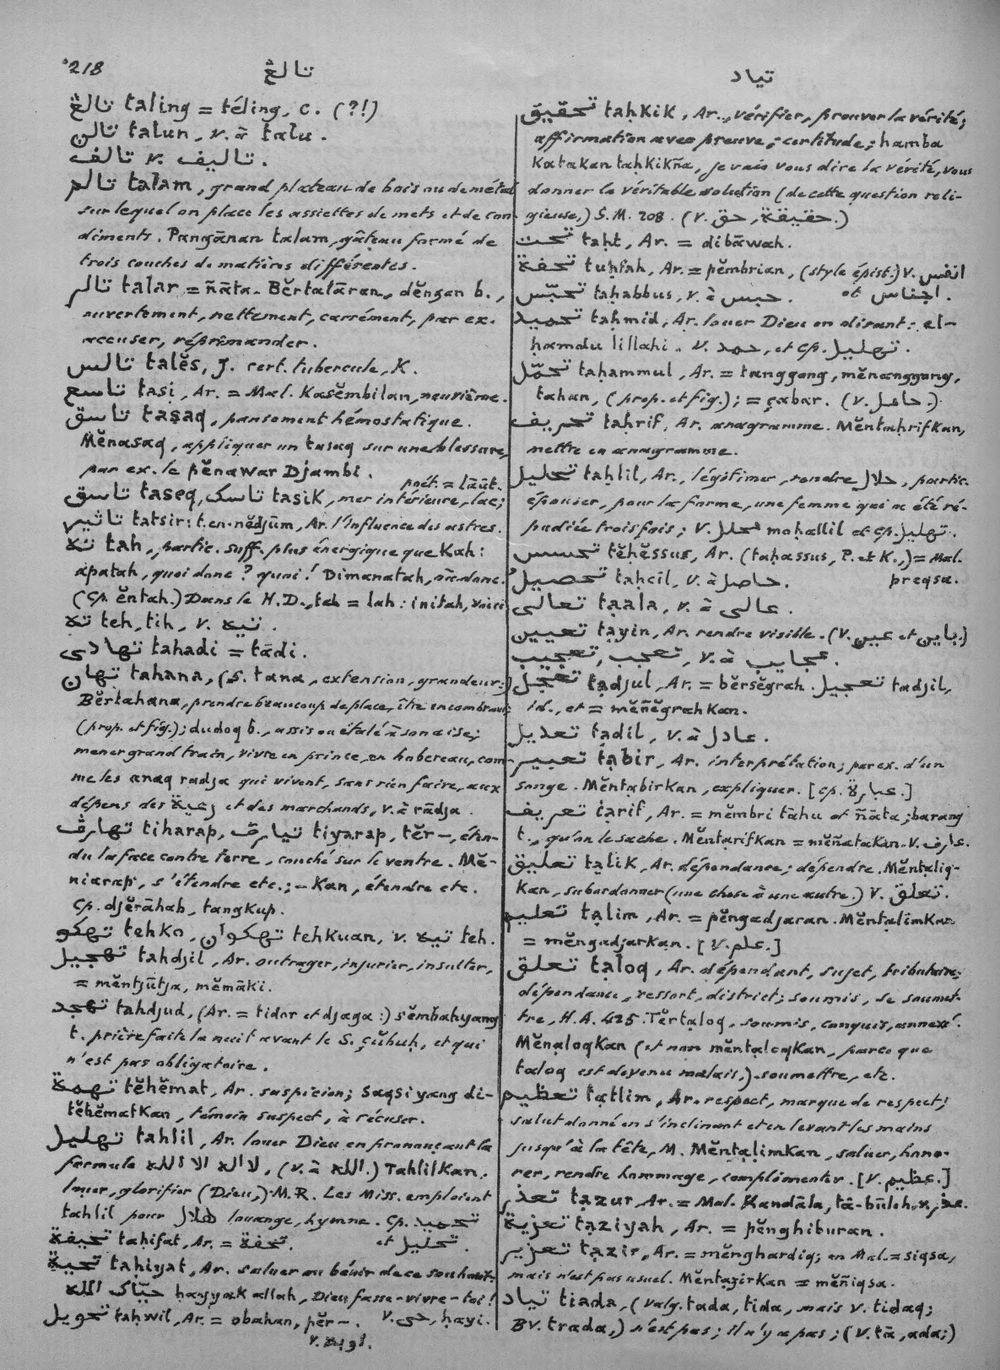 218
تالڠ
تياد
تالڠ taling = téling, c. (?!)
تالن talun, v. à talu.
تالف v. تاليف.
تالم talam, grand plateau de bois ou de métal
sur lequel on place les assiettes de mets et de con-
diments. Pangānan talam, gâteau formé de
trois couches de matières différentes.
تالر talar = ñāta. Bĕrtalāran, dĕngan b.,
ouvertement, nettement, carrément, par ex.
accuser, réprimander.
تالس talĕs, J. cert. tubercule, K.
تاسع tasi, Ar. = Mal. Kasĕmbilan, neuvième.
تاسق taṣaq, pansement hémostatique.
Mĕnasaq, appliquer un tasaq sur une blessure,
par ex. le pĕnawar Djambi.
poét. = lāūt.
تاسق taseq, تاسک tasik, mer intérieure, lac;
تاثير tatsir: t. en-nĕdjūm, Ar. l'influence des astres.
ته tah, partic. suff. plus énergique que Kah:
apatah, quoi donc? quoi! Dimanatah, où donc.
(Cp. ĕntah.) Dans le H.D., teh = lah: initah, voici
ته teh, tih, v. تيه.
تهادي tahadi = tādi.
تهان tahana, (S. tana, extension, grandeur:)
Bĕrtahana, prendre beaucoup de place, être encombrant
(prop. et fig.); dudoq b., assis ou étalé à son aise;
mener grand train, vivre en prince, en hobereau, com-
me les anaq radja qui vivent, sans rien faire, aux
dépens des رعية et des marchands, v. à rādja.
تهارڤ tiharap, تيارڤ tiyarap, tĕr-, éten-
du la face contre terre, couché sur le ventre. Mĕ-
niarap, s'étendre etc.; -kan, étendre etc.
Cp. djĕrāhab, tangkup.
تهكو tehko, تهكوان tehkuan, v. تيه teh.
تهجيل tahdjil, Ar. outrager, injurier, insulter,
= mĕntjūtja, mĕmāki.
تهجد tahdjud, (Ar. = tidor et djaga:) sĕmbahyang
t. prière faite la nuit avant le S. çūbuḥ, et qui
n'est pas obligatoire.
تهمة tĕhĕmat, Ar. suspicion; saqsi yang di-
tĕhĕmatKan, témoin suspect, à récuser.
تهليل tahlil, Ar. louer Dieu en prononçant la
formule لا اله الا الله, (v. à الله.) TahlilKan,
louer, glorifier (Dieu,) M.R. Les Mss. emploient
tahlil pour هلال louange, hymne. Cp. تحميد
تحيفة taḥifat, Ar. = تحفة. et تحليل.
تحية taḥiyat, Ar. saluer ou bénir de ce souhait:
حيّاک الله ḥayyak allah, Dieu fasse-vivre-toi!
تحويل taḥwil, Ar. = obahan, pĕr-. v. حى, ḥayi.
v. اوبه.
تحقيق taḥkik, Ar., vérifier, prouver la vérité;
affirmation avec preuve; certitude; hamba
Katakan tahkikña, je vais vous dire la vérité, vous
donner la véritable solution (de cette question reli-
gieuse,) S.M. 208. (v. حق, حقيقة.)
تحت taḥt, Ar. = dibāwah.
تحفة tuḥfah, Ar. = pĕmbrian, (style épist.) v. انفس
et اجناس.
تحبّس taḥabbus, v. à حبس.
تحميد taḥmid, Ar. louer Dieu en disant: el-
ḥamdu lillahi. v. حمد, et cp. تهليل.
تحمّل taḥammul, Ar. = tanggong, mĕnanggong,
tahan, (prop. et fig.); = çabar. (v. حامل.)
تحريف taḥrif, Ar. anagramme. MĕntaḥrifKan,
mettre en anagramme.
تحليل taḥlil, Ar., légitimer, rendre حلال, partic.
épouser, pour la forme, une femme qui a été ré-
pudiée trois fois; v. محلل moḥallil et cp. تهليل.
تحسس tĕhĕssus, Ar. (taḥassus, P. et K.,) = Mal.
preqsa.
تحصيل taḥcil, v. à حاصل.
تعالى taạala, v. à عالى.
تعيين tạyin, Ar. rendre visible. (v. عين et باين.)
تعجب, تعجيب, v. à عجايب.
تعجل tạdjul, Ar. = bĕrsĕgrah. تعجيل tạdjil,
id., et = mĕñĕgrahKan.
تعديل tạdil, v. à عادل.
تعبير tạbir, Ar. interprétation; par ex. d'un
songe. MĕntạbirKan, expliquer. [cp. عبارة.]
تعريف tạrif, Ar. = mĕmbri tāhu et ñāta; barang
t., qu'on le sache. MĕntạrifKan = mĕñataKan. v. عارف.
تعليق tạlik, Ar. dépendance; dépendre. Mĕntạliq-
Kan, subordonner (une chose à une autre.) v. تعلق.
تعليم tạlim, Ar. = pĕngadjaran. MĕntạlimKan
= mĕngadjarKan. [v. علم.]
تعلق tạloq, Ar. dépendant, sujet, tributaire;
dépendance, ressort, district; soumis, se soumet-
tre, H.A. 425. Tĕrtạloq, soumis, conquis, annexé.
MĕnạloqKan (et non mĕntạloqKan, parce que
taloq est devenu malais,) soumettre, etc.
تعظيم tạtlim, Ar. respect, marque de respect;
salut donné en s'inclinant et en levant les mains
jusqu'à la tête, M. MĕntạlimKan, saluer, hono-
rer, rendre hommage, complimenter. [v. عظيم.]
تعذر tạzur, Ar. = Mal. Kandāla, tā-būleh, v. عذر.
تعزية tạziyah, Ar. = pĕnghiburan.
تعزير tạzir, Ar. = mĕnghardiq; en Mal. = siqsa,
mais n'est pas usuel. MĕntạzirKan = mĕñiqsa.
تياد tiada, (valg. tada, tida, mais v. tidaq;
BV. trada,) n'est pas; il n'y a pas; (v. tā, ada;)